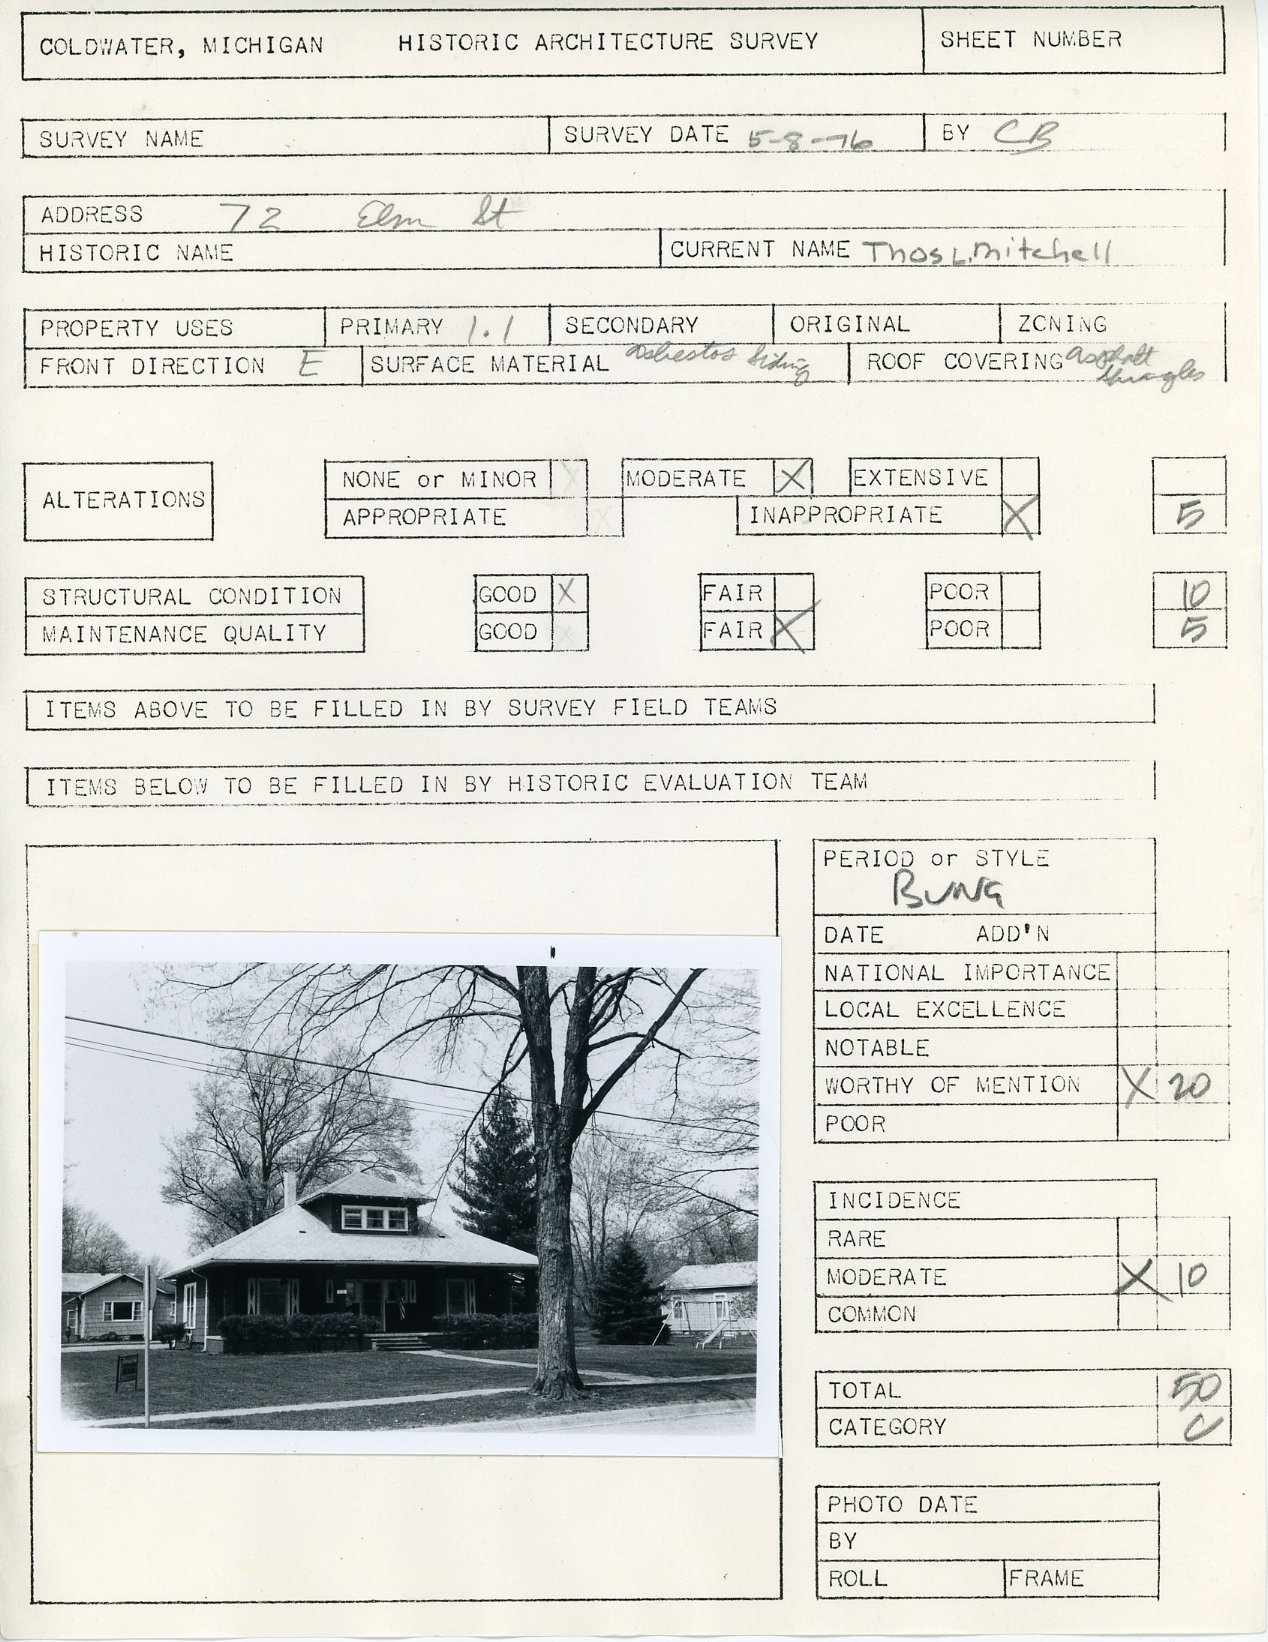 COLDWATER, MICHIGAN HISTORIC ARCHITECTURE SURVEY SHEET NUMBER
SURVEY NAME SURVEY DATE 5-8-76 BY CB
ADDRESS 72 Elm St
HISTORIC NAME CURRENT NAME Thos L. Mitchell
PROPERTY USES PRIMARY 1.1 SECONDARY ORIGINAL ZONING
FRONT DIRECTION E SURFACE MATERIAL asbestos siding ROOF COVERING asphalt shingles
ALTERATIONS NONE or MINOR X MODERATE X EXTENSIVE
APPROPRIATE X INAPPROPRIATE X 5
STRUCTURAL CONDITION GOOD X FAIR POOR 10
MAINTENANCE QUALITY GOOD X FAIR X POOR 5
ITEMS ABOVE TO BE FILLED IN BY SURVEY FIELD TEAMS
ITEMS BELOW TO BE FILLED IN BY HISTORIC EVALUATION TEAM
PERIOD or STYLE
BUNG
DATE ADD'N
NATIONAL IMPORTANCE
LOCAL EXCELLENCE
NOTABLE
WORTHY OF MENTION X 20
POOR
INCIDENCE
RARE
MODERATE X 10
COMMON
TOTAL 50
CATEGORY C
PHOTO DATE
BY
ROLL FRAME